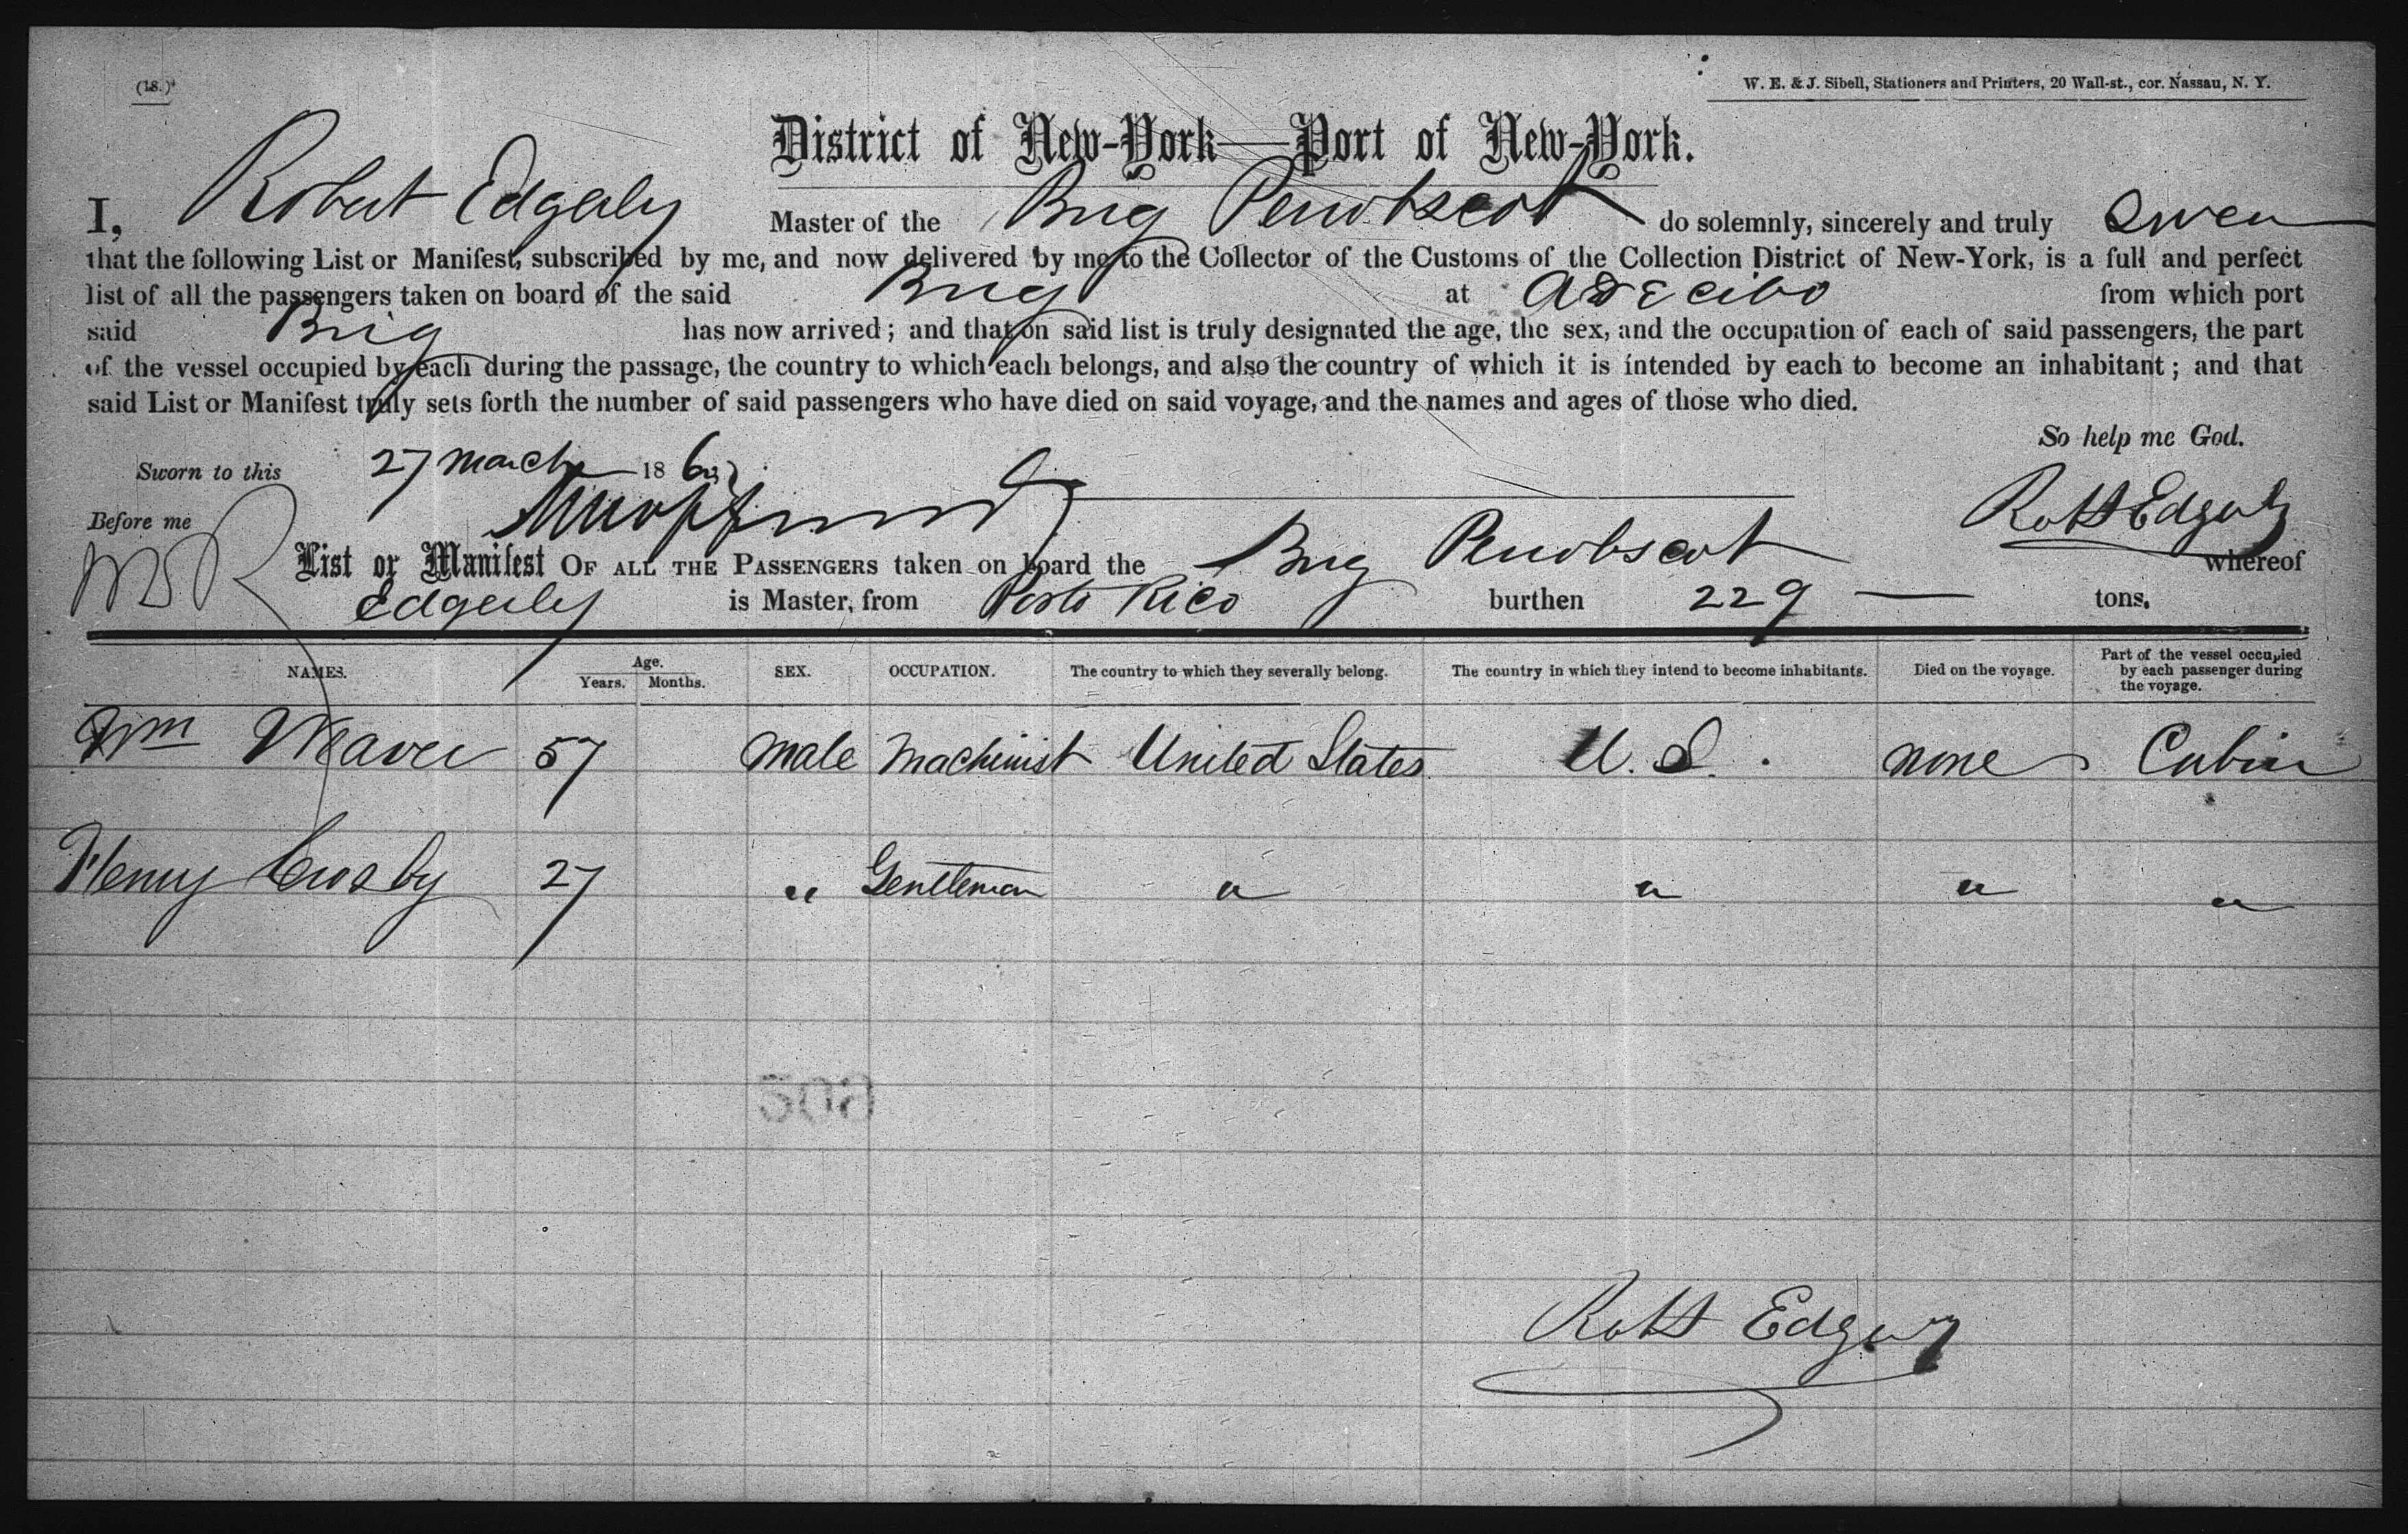 (18.)
W. E. & J. Sibell, Stationers and Printers, 20 Wall-st., cor. Nassau, N. Y.
District of New-York—Port of New-York.
I, Robert Edgerly Master of the Brig Penobscot do solemnly, sincerely and truly Swear
that the following List or Manifest, subscribed by me, and now delivered by me to the Collector of the Customs of the Collection District of New-York, is a full and perfect
list of all the passengers taken on board of the said Brig at Arecibo from which port
said Brig has now arrived; and that on said list is truly designated the age, the sex, and the occupation of each of said passengers, the part
of the vessel occupied by each during the passage, the country to which each belongs, and also the country of which it is intended by each to become an inhabitant; and that
said List or Manifest truly sets forth the number of said passengers who have died on said voyage, and the names and ages of those who died.
So help me God.
Sworn to this 27 March 186
Before me
Robt Edgerly
List or Manifest OF ALL THE PASSENGERS taken on board the Brig Penobscot whereof
Edgerly is Master, from Porto Rico burthen 229 — tons.
NAMES. Age. Years. Months. SEX. OCCUPATION. The country to which they severally belong. The country in which they intend to become inhabitants. Died on the voyage. Part of the vessel occupied by each passenger during the voyage.
Wm Weaver 57 Male Machinist United States U. S. none Cabin
Henry Crosby 27 " Gentleman " " " "
Robt Edgerly